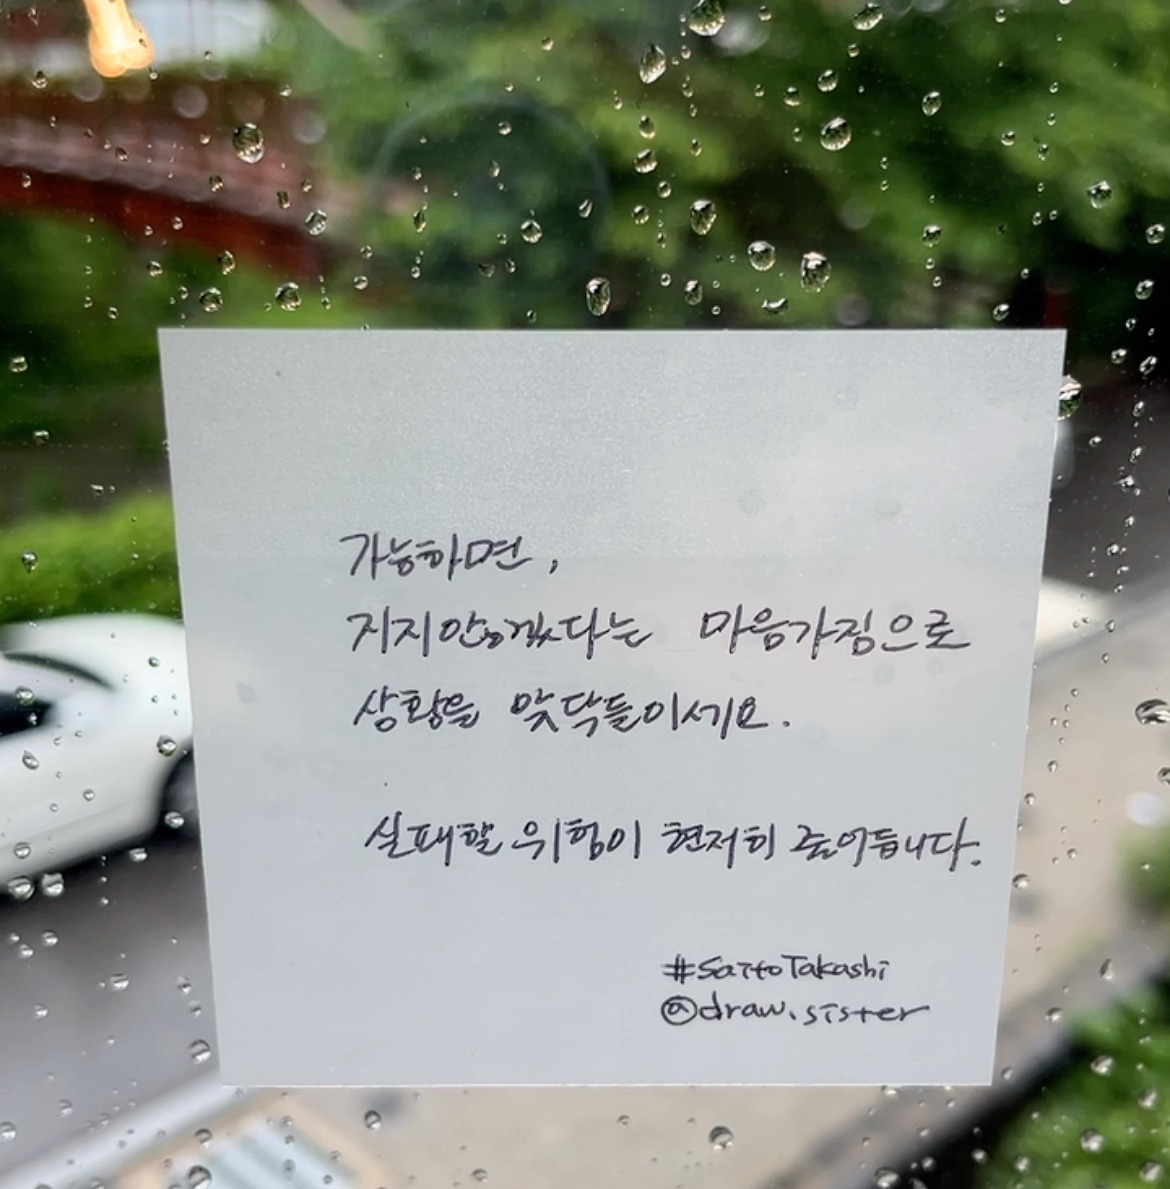 가능하면,
지지않겠다는 마음가짐으로
상황을 맞닥들이세요.
실패할 위험이 현저히 줄어듭니다.
#SaitoTakashi
@draw.sister